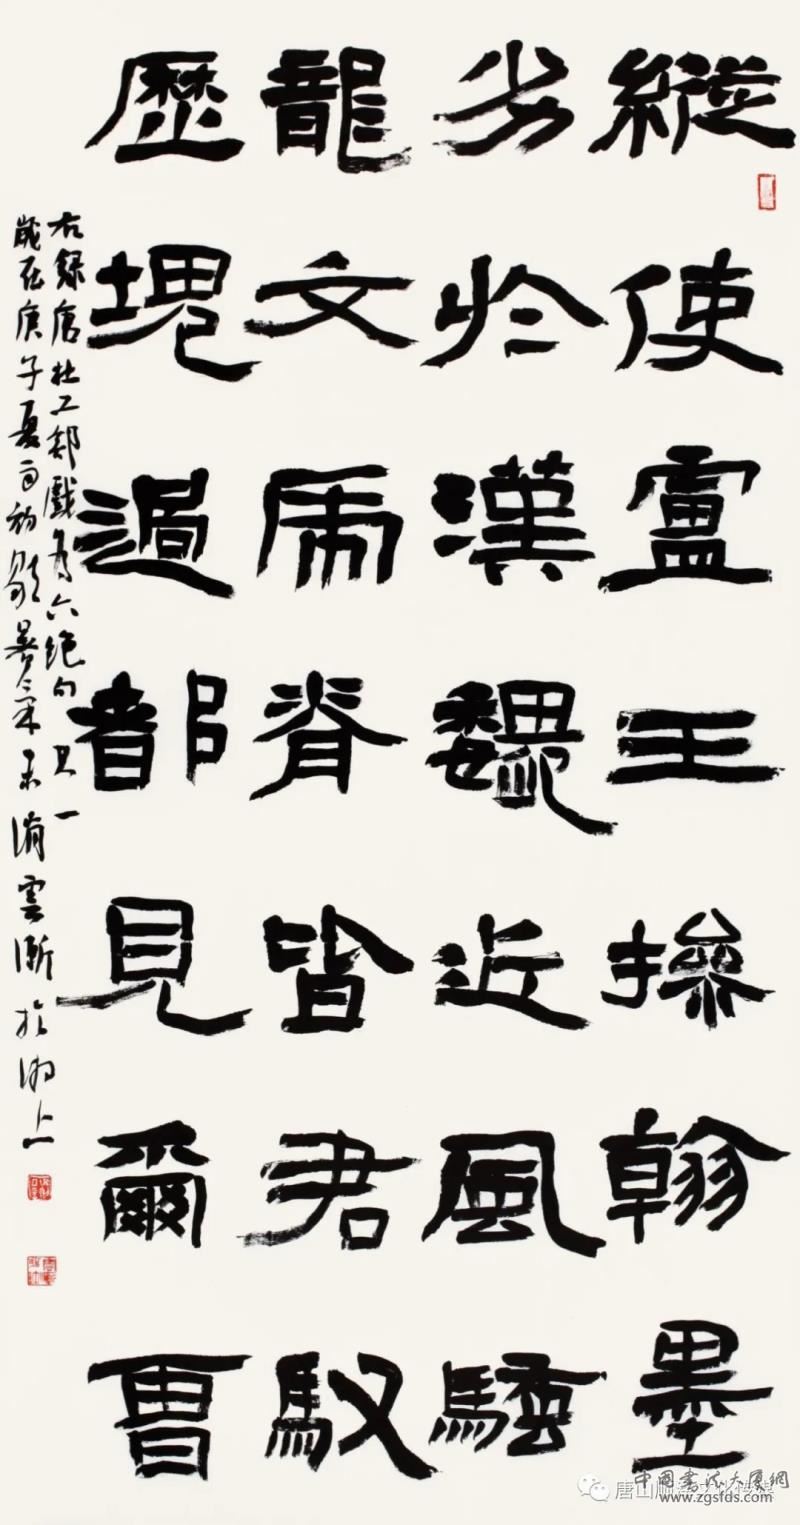 縱使盧王操翰墨
劣於漢魏近風騷
龍文虎脊皆君馭
歷塊過都見爾曹
右錄唐杜工部戲為六絕句其一
歲在庚子夏雨初歇暑氣未消雲漸於湖上
唐山
中國書法大厦網
www.zgsfds.com